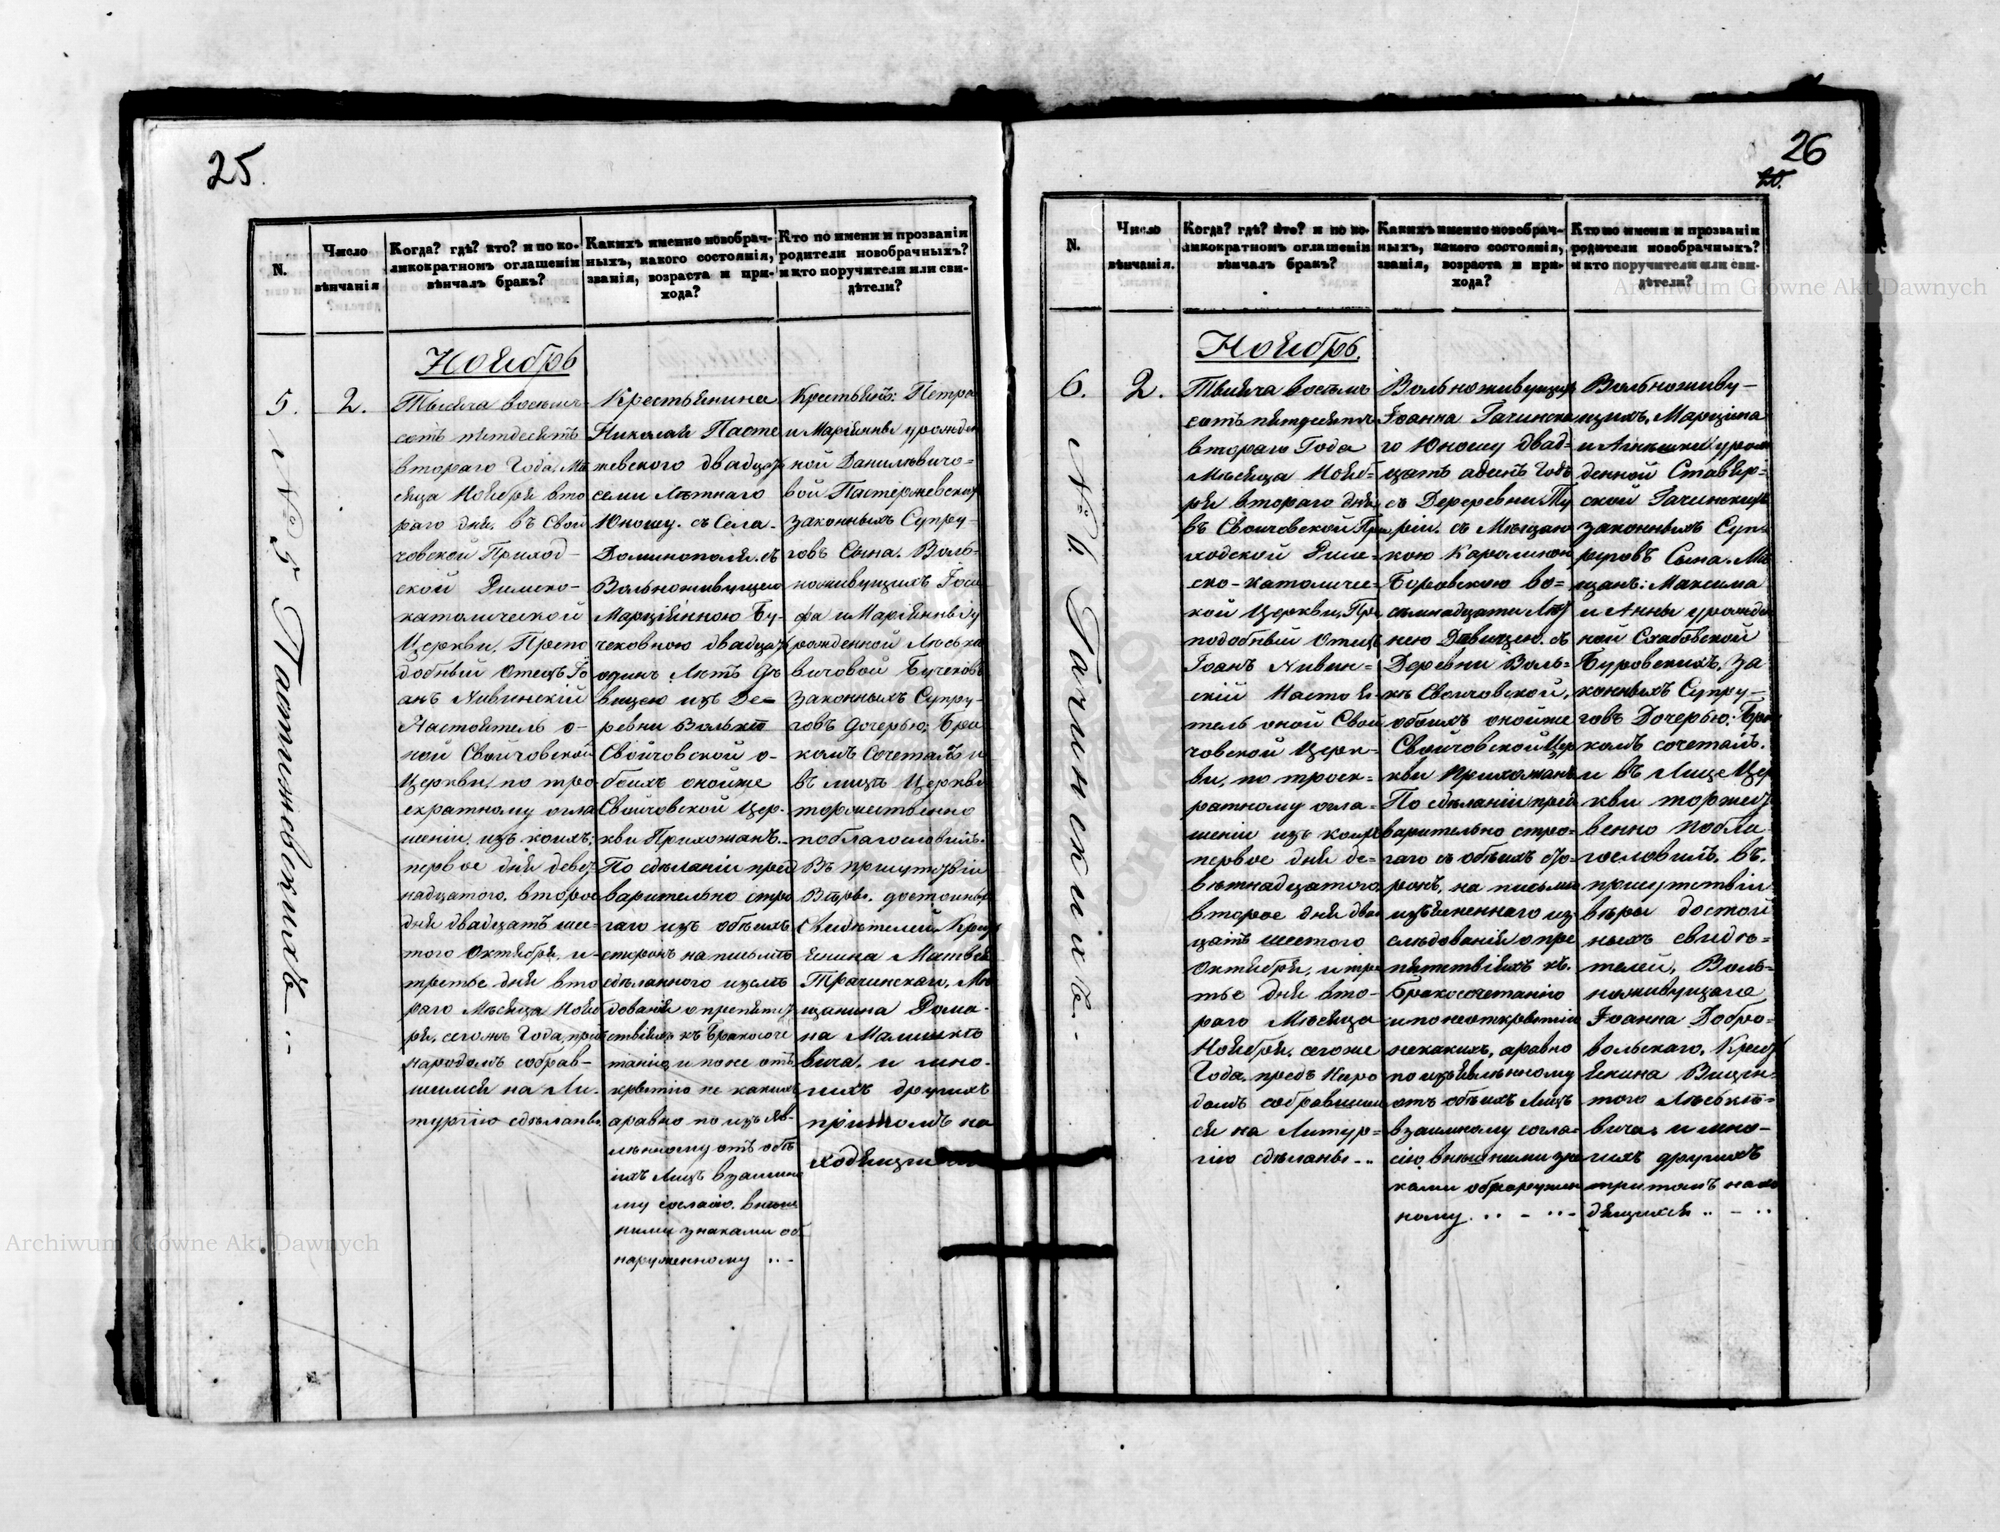 25.
N.
Число вѣнчанія
Когда? гдѣ? кто? и по ко-
ликократномъ оглашеніи
вѣнчалъ бракъ?
Какихъ именно новобрач-
ныхъ, какого состоянія,
званія, возраста и при-
хода?
Кто по имени и прозванію
родители новобрачныхъ?
и кто поручители или сви-
дѣтели?
5.
2.
№ 5 Пастержевскихъ
Ноябрь
Тысяча восемь-
сотъ пятдесятъ
втораго Года, Мѣ
сяца Ноября вто
раго дня, въ Свой
човской Приход-
ской Римско-
католической
Церкви, Препо
добный Отецъ Іо
анъ Нивинскій
Настоятель о-
ной Свойчовской
Церкви, по тро
екратному огла
шеніи, изъ коихъ:
первое дня девят
надцатого, второе
дня двадцать шес-
того Октября, и-
третье дня вто
раго Мѣсяца Нояб
ря, сегожъ Года, предъ
народомъ собрав-
шимся на Ли-
тургію сдѣланы
Крестьянина
Николая Пасте
жевского двадцать
семи Лѣтнаго
Юношу. съ Села-
Доминополя, съ
Вольноживущею
Марціянною Бу-
чековною двадцать
одинъ Лѣтъ Дѣ
вицею изъ Де=
ревни Волька
Свойчовской о-
боихъ онойже
Свойчовской Цер-
кви Прихожанъ.-
По сдѣланіи пред
варительно стро
гаго изъ обѣихъ
сторонъ на письмѣ
сдѣланного изслѣ
дованія о препят
ствіяхъ къ Бракосоче
танію, и по не отъ
крытію не какихъ
аравно по изъяв-
лѣнному отъ обѣ
ихъ Лицъ взаимно
му согласію, внѣш
ними знаками об
наруженному ..-
Крестьянъ: Петра
и Маріянны урожден
ной Данилевичо=
вой Пастержевскихъ
законныхъ Супру-
говъ Сына. Воль-
ноживущихъ Іоси
фа и Маріянны у
рожденной Люсько
вичовой Бучековъ
законныхъ Супру-
говъ Дочерью, Бра
комъ сочеталъ и
въ лицѣ Церкви
торжественно
поблагословилъ.
Въ присутствіи
Вѣры достойныхъ
Свидѣтелей Крест
янина Матвея
Трачинскаго, Мѣ
щанина Рома-
на Малишке
вича, и мно-
гихъ другихъ
притомъ на
ходящихся
26
N.
Число вѣнчанія.
Когда? гдѣ? кто? и по ко-
ликократномъ оглашеніи
вѣнчалъ бракъ?
Какихъ именно новобрач-
ныхъ, какого состоянія,
званія, возраста и при-
хода?
Кто по имени и прозванію
родители новобрачныхъ?
и кто поручители или сви-
дѣтели?
6.
2.
№ 6. Гачинскихъ
Ноябрь.
Тысяча восемъ
сотъ пятдесятъ
втораго Года
Мѣсяца Нояб-
ря втораго дня,
въ Свойчовской При
ходской Рим-
ско-католичес-
кой Церкви, Пре
подобный Отецъ
Іоанъ Нивин=
скій Настоя-
тель оной Свой
човской Церк-
ви, по троек=
ратному огла-
шеніи изъ коихъ
первое дня де-
вятнадцатого,
второе дня двад
цать шестого
Октября, и тре
тье дня вто-
раго Мѣсяца
Ноября, сегоже
Года, предъ Наро
домъ собравшим
ся на Литур=
гію сдѣланы ..
Вольноживущаго
Іоанна Гачинска
го Юношу двад=
цать одинъ Годъ
съ Деревни Ту
ріи. съ Мѣщан
кою Каролиною
Буровскою во=
семнадцати Лѣт
нею Дѣвицею, съ
Деревни Воль=
ки Свойчовской,
обоихъ онойже
Свойчовской Цер
кви Прихожанъ
По сдѣланіи пред
варительно стро-
гаго съ обѣихъ сто-
ронъ, на письмѣ
изъясненнаго из
слѣдованія о пре
пятствіяхъ къ
Бракосочетанію
и по неоткрытію
некакихъ, аравно
по изъявлѣнному
отъ обѣихъ Лицъ
взаимному согла-
сію, внѣшними зна
ками обнаружен
ному. .. - .. -
Вольноживу-
щихъ, Марцина
и Агнешки урож
денной Ставяр-
ской Гачинскихъ
законныхъ Суп-
руговъ Сына. Мѣ
щанъ: Максима
и Анны урожден
ной Слабовской
Буровскихъ, за
конныхъ Супру-
говъ Дочерью: Бра
комъ сочеталъ.
и въ Лице Цер
кви торжест
венно побла
гословилъ, въ.
присутствіи
вѣры достой
ныхъ свидѣ=
телей, Воль-
ноживущаго
Іоанна Добро-
вольскаго, Крест
янина Вицен-
того Люске-
вича, и мно-
гихъ другихъ
притомъ нахо
дящихся .. - ..
Archiwum Główne Akt Dawnych
Archiwum Główne Akt Dawnych